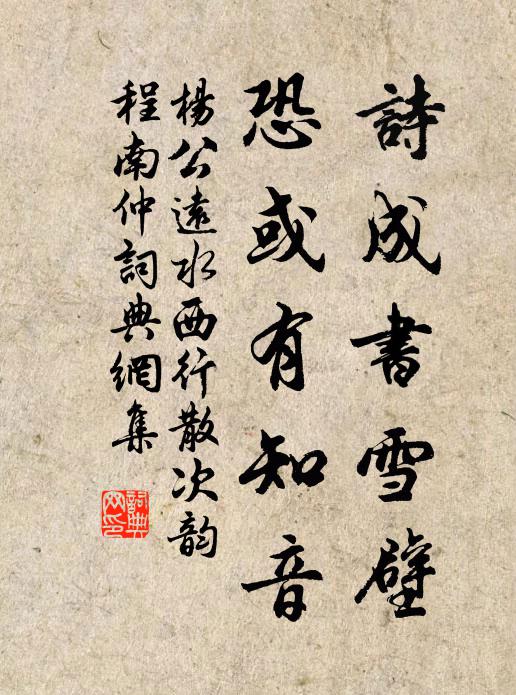 詩成書雪壁
恐或有知音
楊公遠水西行散次韵
程南仲詞典網集
詞典网印